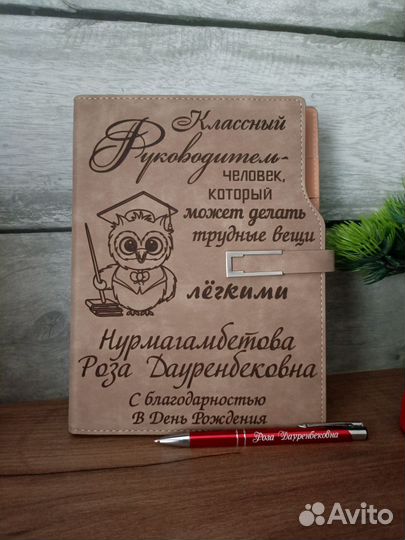 Классный
Руководитель-
человек,
который
может делать
трудные вещи
лёгкими
Нурмагамбетова
Роза Дауренбековна
С благодарностью
В День Рождения
Роза Дауренбековна
Avito